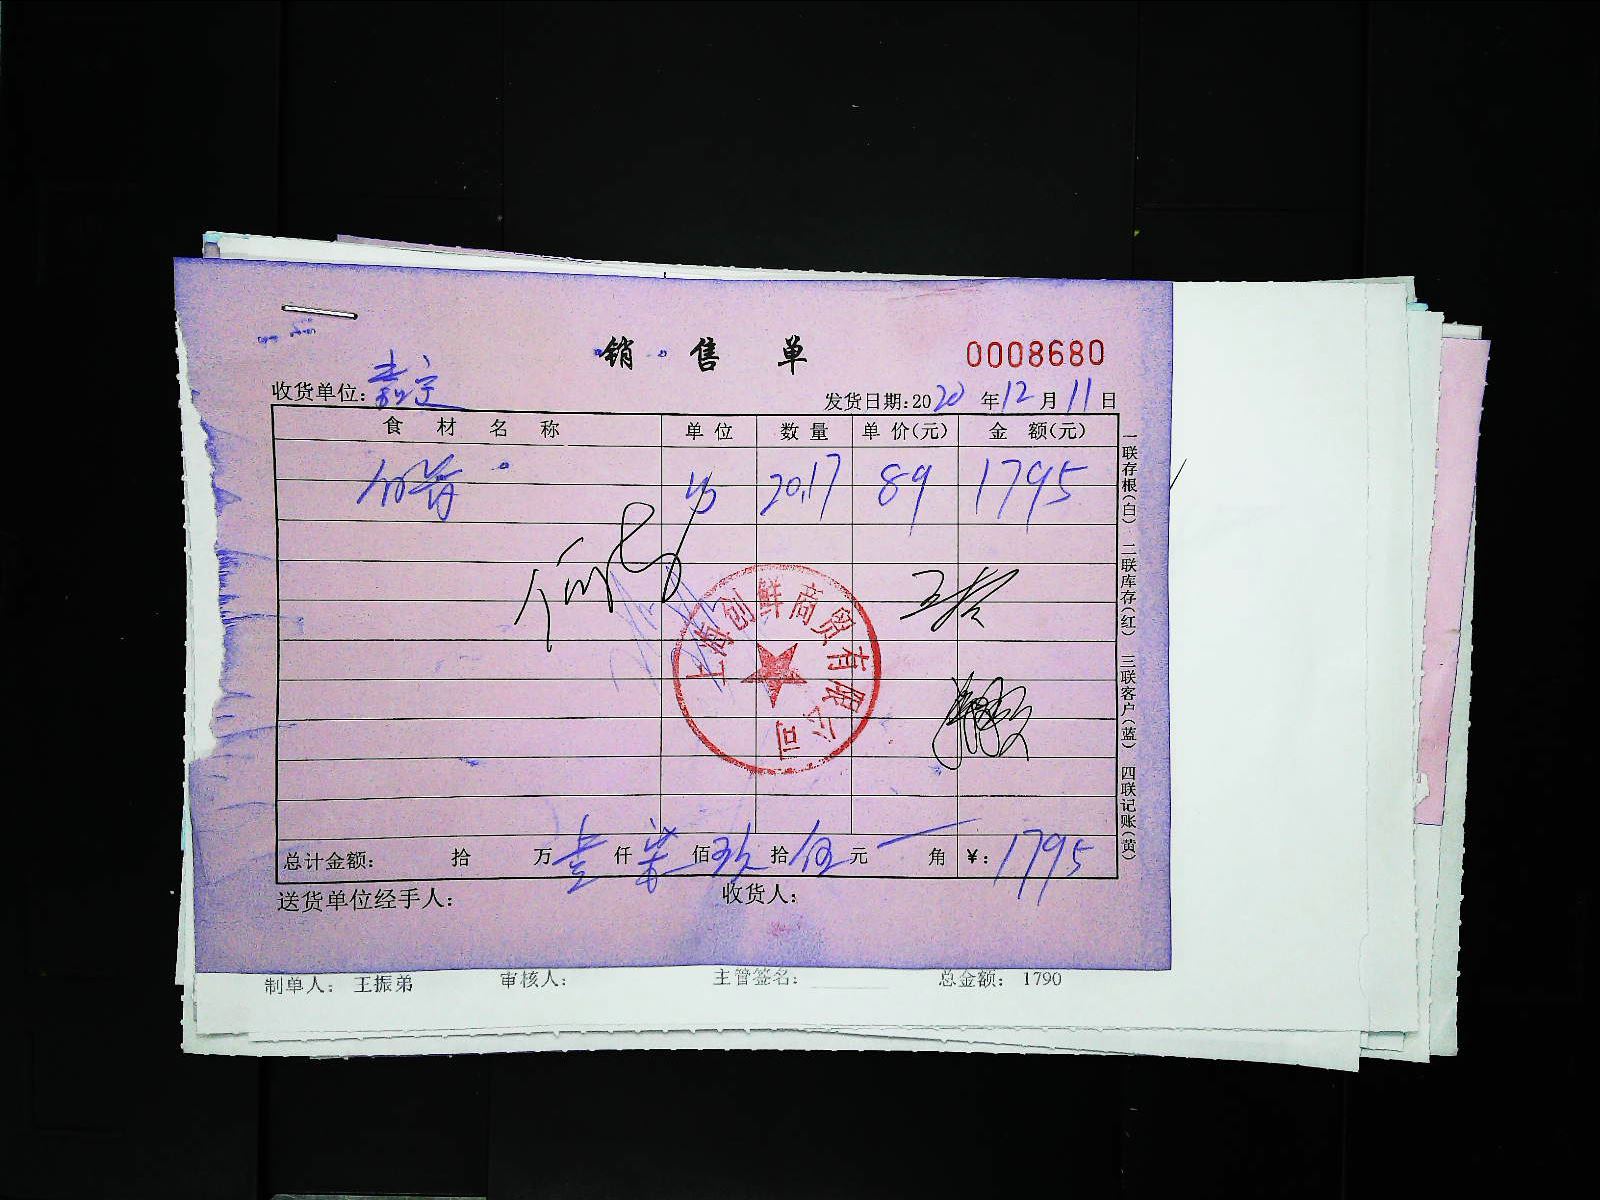 销售单
0008680
收货单位：嘉定
发货日期：2020年12月11日
食材名称 单位 数量 单价(元) 金额(元)
20.17 89 1795
上海创鲜商贸有限公司
总计金额： 拾 万 壹 仟 柒 佰 玖 拾 伍 元 角 ¥：1795
送货单位经手人： 收货人：
一联存根(白) 二联库存(红) 三联客户(蓝) 四联记账(黄)
制单人： 王振弟 审核人： 主管签名： 总金额： 1790